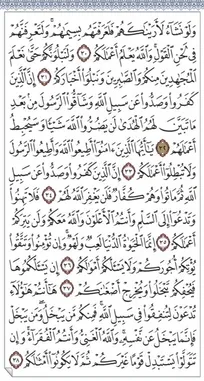 وَلَوْ نَشَآءُ لَأَرَيْنَٰكَهُمْ فَلَعَرَفْتَهُم بِسِيمَٰهُمْ ۚ وَلَتَعْرِفَنَّهُمْ
فِى لَحْنِ ٱلْقَوْلِ ۚ وَٱللَّهُ يَعْلَمُ أَعْمَٰلَكُمْ ٣٠ وَلَنَبْلُوَنَّكُمْ حَتَّىٰ نَعْلَمَ
ٱلْمُجَٰهِدِينَ مِنكُمْ وَٱلصَّٰبِرِينَ وَنَبْلُوَا۟ أَخْبَارَكُمْ ٣١ إِنَّ ٱلَّذِينَ
كَفَرُوا۟ وَصَدُّوا۟ عَن سَبِيلِ ٱللَّهِ وَشَآقُّوا۟ ٱلرَّسُولَ مِنۢ بَعْدِ
مَا تَبَيَّنَ لَهُمُ ٱلْهُدَىٰ لَن يَضُرُّوا۟ ٱللَّهَ شَيْـًٔا وَسَيُحْبِطُ
أَعْمَٰلَهُمْ ٣٢ يَٰٓأَيُّهَا ٱلَّذِينَ ءَامَنُوٓا۟ أَطِيعُوا۟ ٱللَّهَ وَأَطِيعُوا۟ ٱلرَّسُولَ
وَلَا تُبْطِلُوٓا۟ أَعْمَٰلَكُمْ ٣٣ إِنَّ ٱلَّذِينَ كَفَرُوا۟ وَصَدُّوا۟ عَن سَبِيلِ
ٱللَّهِ ثُمَّ مَاتُوا۟ وَهُمْ كُفَّارٌ فَلَن يَغْفِرَ ٱللَّهُ لَهُمْ ٣٤ فَلَا تَهِنُوا۟
وَتَدْعُوٓا۟ إِلَى ٱلسَّلْمِ وَأَنتُمُ ٱلْأَعْلَوْنَ وَٱللَّهُ مَعَكُمْ وَلَن يَتِرَكُمْ
أَعْمَٰلَكُمْ ٣٥ إِنَّمَا ٱلْحَيَوٰةُ ٱلدُّنْيَا لَعِبٌ وَلَهْوٌ ۚ وَإِن تُؤْمِنُوا۟ وَتَتَّقُوا۟
يُؤْتِكُمْ أُجُورَكُمْ وَلَا يَسْـَٔلْكُمْ أَمْوَٰلَكُمْ ٣٦ إِن يَسْـَٔلْكُمُوهَا
فَيُحْفِكُمْ تَبْخَلُوا۟ وَيُخْرِجْ أَضْغَٰنَكُمْ ٣٧ هَٰٓأَنتُمْ هَٰٓؤُلَآءِ
تُدْعَوْنَ لِتُنفِقُوا۟ فِى سَبِيلِ ٱللَّهِ فَمِنكُم مَّن يَبْخَلُ ۖ وَمَن يَبْخَلْ
فَإِنَّمَا يَبْخَلُ عَن نَّفْسِهِۦ ۚ وَٱللَّهُ ٱلْغَنِىُّ وَأَنتُمُ ٱلْفُقَرَآءُ ۚ وَإِن
تَتَوَلَّوْا۟ يَسْتَبْدِلْ قَوْمًا غَيْرَكُمْ ثُمَّ لَا يَكُونُوٓا۟ أَمْثَٰلَكُم ٣٨